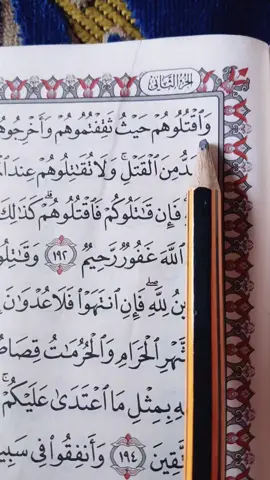 الجزء الثاني
وَٱقۡتُلُوهُمۡ حَيۡثُ ثَقِفۡتُمُوهُمۡ وَأَخۡرِجُوهُم
مِنَ ٱلۡقَتۡلِۚ وَلَا تُقَٰتِلُوهُمۡ عِندَ
فَإِن قَٰتَلُوكُمۡ فَٱقۡتُلُوهُمۡۗ كَذَٰلِكَ
ٱللَّهَ غَفُورٞ رَّحِيمٞ ١٩٢ وَقَٰتِلُو
لِلَّهِۖ فَإِنِ ٱنتَهَوۡاْ فَلَا عُدۡوَٰنَ
ٱلۡحَرَامِ وَٱلۡحُرُمَٰتُ قِصَاص
بِمِثۡلِ مَا ٱعۡتَدَىٰ عَلَيۡكُمۡۚ
١٩٤ وَأَنفِقُواْ فِي سَبِي